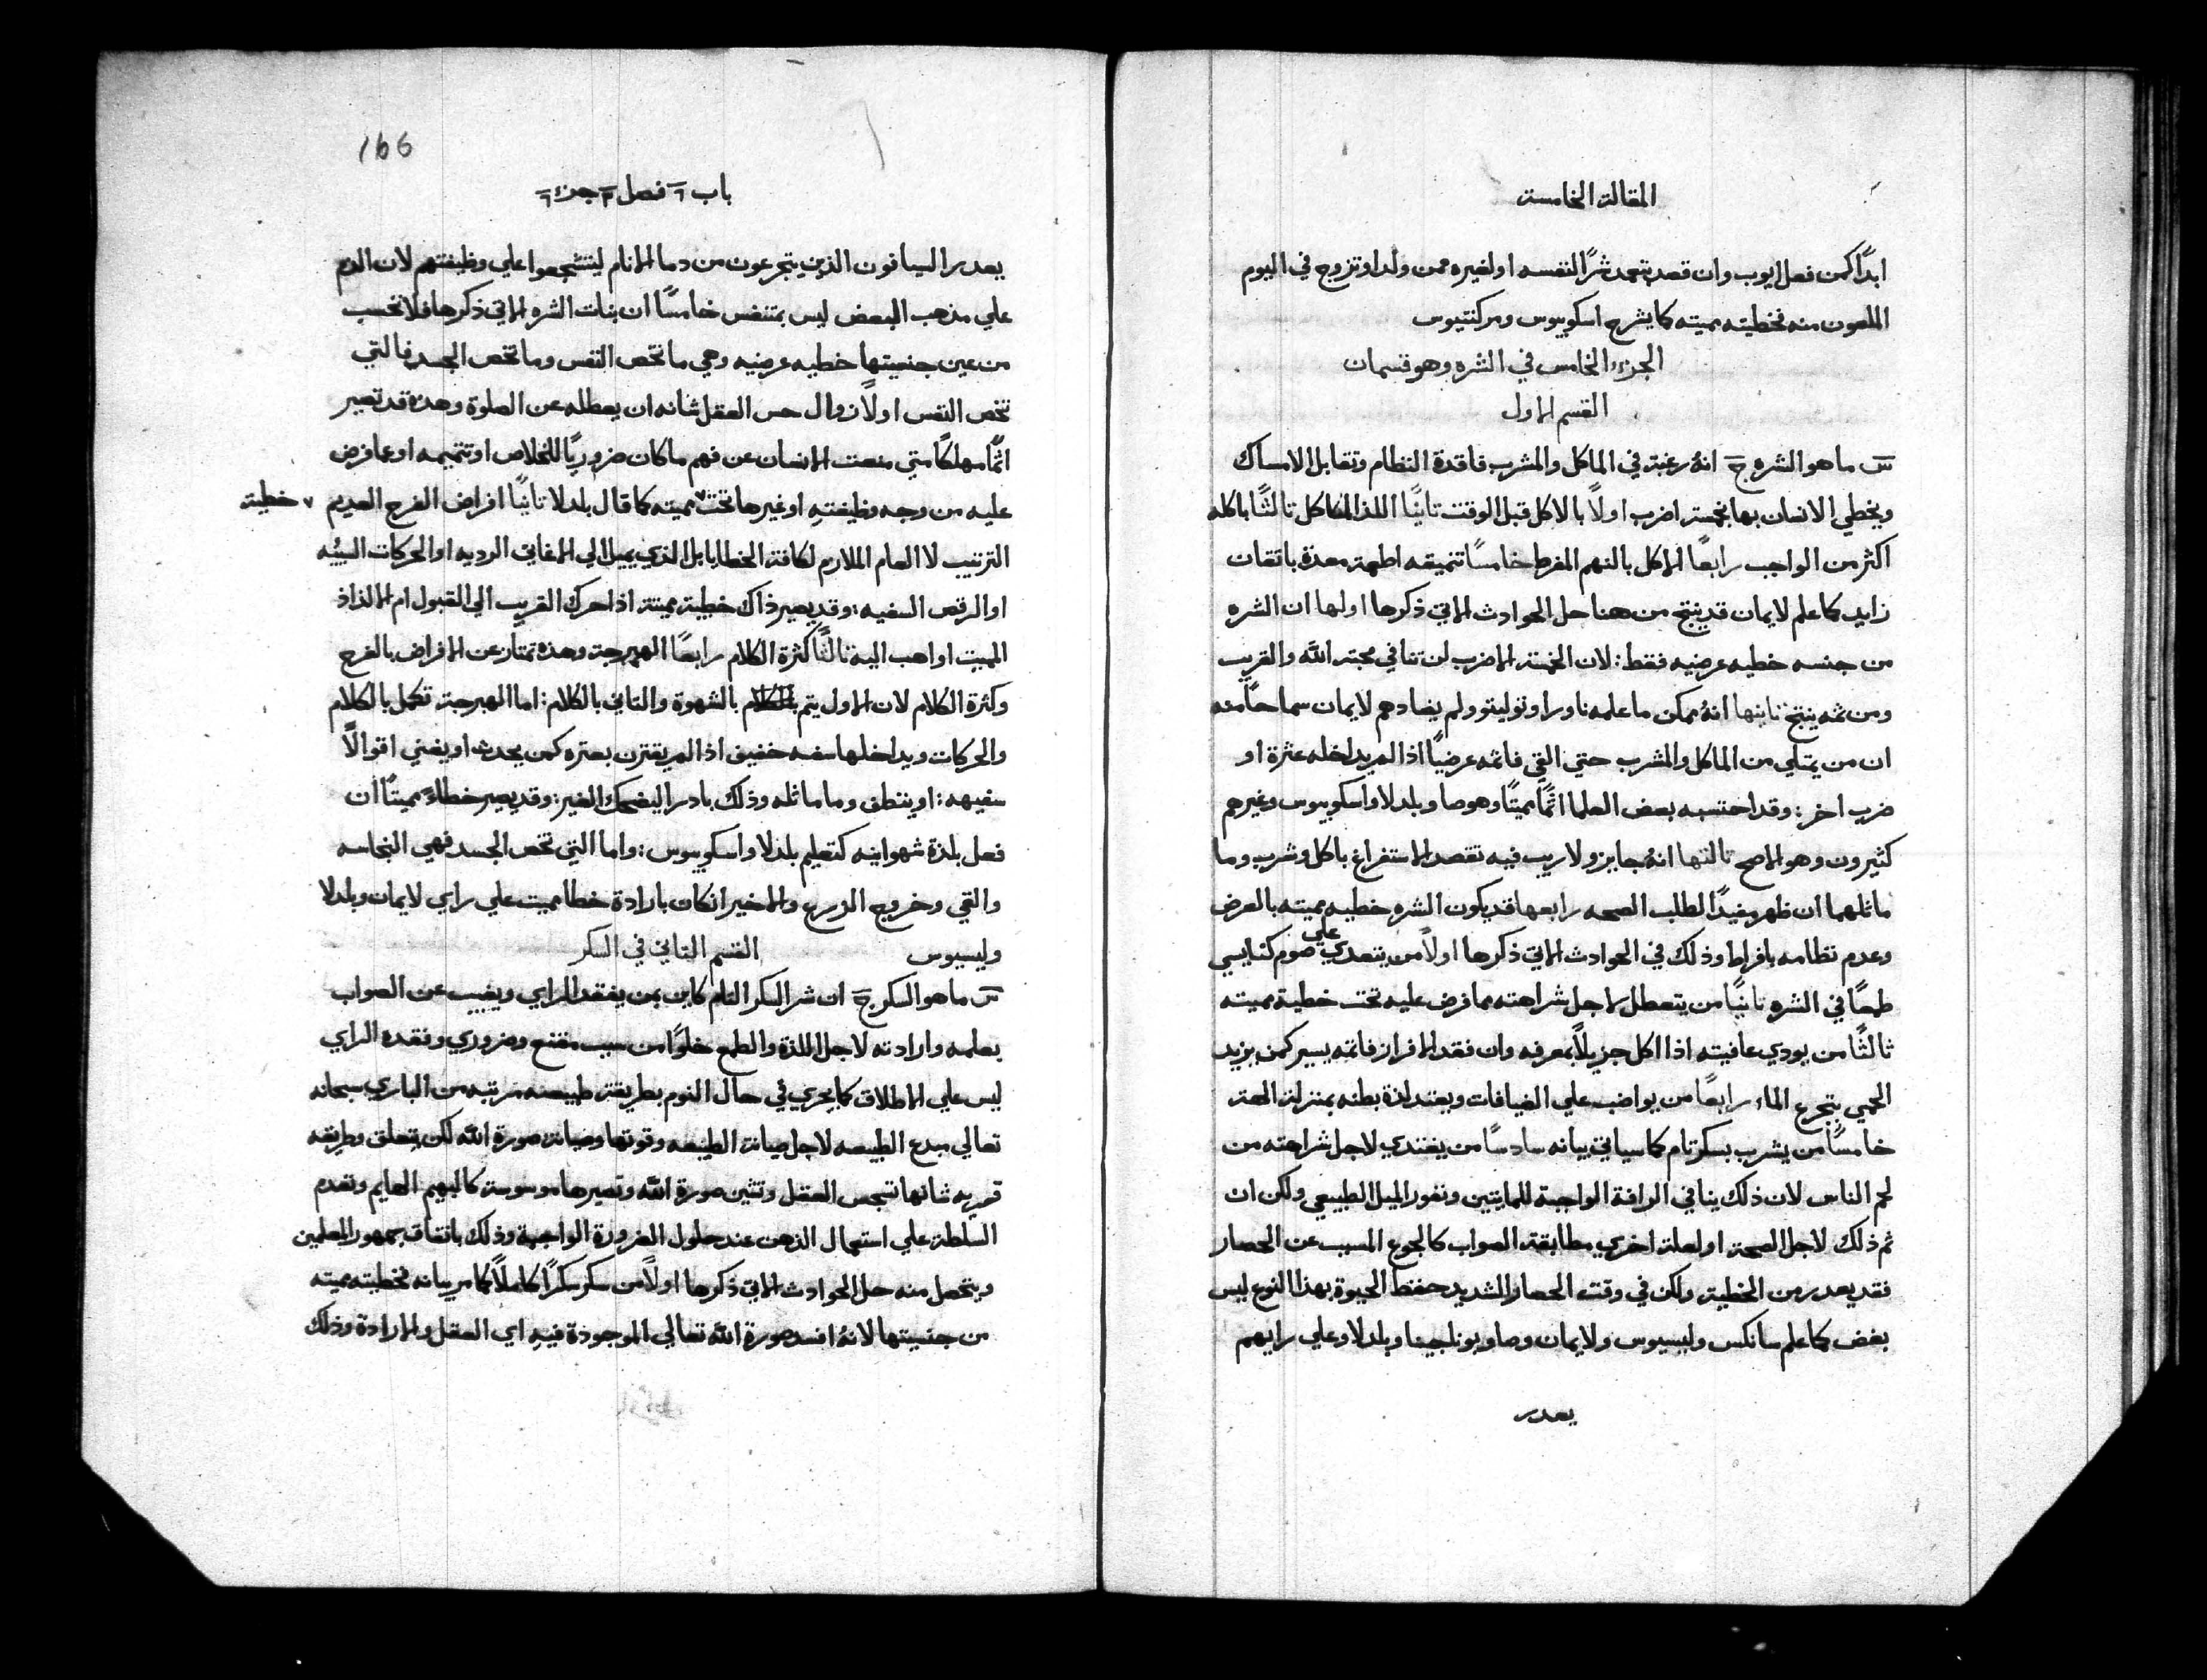 المقالة الخامسة
ابدًا كمن فعل ايوب وان قصد بتعمد شرًا لنفسه او لغيره ممن ولد او تزوج في اليوم
الملعون منه فخطيته مميته كما يشرح اسكوبوس ومركنتيوس
الجزء الخامس في الشره وهو قسمان
القسم الاول
س ما هو الشره ج انهُ رغبة في الماكل والمشرب فاقدة النظام وتقابل الامساك
ويخطي الانسان بها بخمسة اضرب اولاً بالاكل قبل الوقت ثانيًا اللذ الماكل ثالثًا باكله
اكثر من الواجب رابعًا الاكل بالنهم المفرط خامسًا تنميقه اطعمة معدة باتقان
زايد كما علم لايمان قد ينتج من هنا حل الحوادث الاتي ذكرها اولها ان الشره
من جنسه خطيه عرضيه فقط: لان الخمسة الاضرب لن تنافي محبة اللّه والقريب
ومن ثمه ينتج ثانيها انهُ ممكن ما علمه ناورا وتوليتو ولم يضادهم لايمان سماحًا منه
ان من يمتلي من الماكل والمشرب حتي القي فاثمه عرضيًا اذا لم يداخله عثرة او
ضرب اخر: وقد احتسبه بعض العلما اثمًا مميتًا وهو صا وبلدلا واسكوبوس وغيرهم
كثيرون وهو الاصح ثالثها انهُ جايز ولا ريب فيه تقصد الاستفراغ باكل وشرب وما
ماثلهما ان ظهر مفيدًا لطلب الصحه رابعها قد يكون الشره خطيه مميته بالعرض
وعدم نظامه بافراط وذلك في الحوادث الاتي ذكرها اولاً من يتعدي علي صوم كنايسي
طمعًا في الشره ثانيًا من يتعطل لاجل شراهته مما فرض عليه تحت خطية مميته
ثالثًا من يودي عافيته اذا اكل جزيلاً بمعرفه وان فقد الافراز فاثمه يسير كمن يزيد
الحمي بتجرع الماء رابعًا من يواضب علي الضيافات ويعتد لذة بطنه بمنزلة الهته
خامسًا من يشرب بسكر تام كما سياتي بيانه سادسًا من يغتدي لاجل شراهته من
لحم الناس لان ذلك ينافي الرافة الواجبة للمايتين ونفور الميل الطبيعي ولكن ان
تم ذلك لاجل الصحة او لعلة اخري مطابقة الصواب كالجوع المسبب عن الحصار
فقد يعدر من الخطية ولكن في وقت الحصار الشديد حفظ الحيوة بهذا النوع ليس
بغض كما علم سانكس وليسيوس ولايمان وصا وبوناجينا وبلدلا وعلي رايهم
يعدر
166
باب ٦ فصل ٣ جزء ٦
يعدر السيافون الذين يتجرعون من دما الانام ليتشجعوا علي وظيفتهم لان الدم
علي مذهب البعض ليس بمتنفس خامسًا ان بنات الشره الاتي ذكرها فلا تحسب
من عين جنسيتها خطيه عرضيه وهي ما تخص النفس وما تخص الجسد فالتي
تخص النفس اولاً زوال حس العقل شانه ان يعطله عن الصلوة وهذه قد تصير
اثمًا مهلكًا متي منعت الانسان عن فهم ما كان ضروريًا للخلاص او تتميمه او عما فرض
عليه من وجه وظيفته او غيرها تحت ٧ مميته كما قال بلدلا ثانيًا افراض الفرح العديم ٧ خطية
الترتيب لا العام الملازم لكافة الخطايا بل الذي يميل الي الاغاني الرديه او الحركات السيئه
او الرقص السفيه: وقد يصير ذاك خطية مميتة اذا حرك القريب الي القبول ام الالذاذ
المميت او اهب اليه ثالثًا كثرة الكلام رابعًا الهبرجة وهذه تمتاز عن الافراض بالفرح
وكثرة الكلام لان الاول يتم بالشهوة والثاني بالكلام: اما الهبرجة تكمل بالكلام
والحركات ويداخلها سفه خفيف اذا لم يقترن بعتره كمن يحدث او يغني اقوالاً
سفيهه: او يتنطف وما ماثله وذلك بادرا ليضحك الغير: وقد يصير خطاءً مميتًا ان
فعل بلذة شهوانيه كتعليم بلدلا واسكوبوس: واما التي تخص الجسد فهي النجاسه
والقي وخروج الزرع والاخير انكان بارادة خطا مميت علي راي لايمان وبلدلا
وليسيوس القسم الثاني في السكر
س ما هو السكر ج ان شر السكر التام كاين بمن يفقد الراي ويغيب عن الصواب
بعلمه وارادته لاجل اللذة والطمع خلوًا من سبب مقنع وضروري وفقده الراي
ليس علي الاطلاق كما يجري في حال النوم بطريقة طبيعيه مرتبه من الباري سبحانه
تعالي مبدع الطبيعه لاجل صيانة الطبيعه وقوتها وصيانة صورة اللّه لكن يتعلق وطريقه
قهريه شانها تبخس العقل وتشين صورة اللّه وتصيرها موسوسة كالبهيم الهايم وتعدم
السلطة علي استعمال الذهن عند حلول الضرورة الواجبة وذلك باتفاق جمهور المعلمين
ويتحصل منه حل الحوادث الاتي ذكرها اولاً من سكر سكرًا كاملاً كما مر بيانه فخطيته مميته
من جنسيتها لانهُ افسد صورة اللّه تعالي الموجودة فيه اي العقل والارادة وذلك